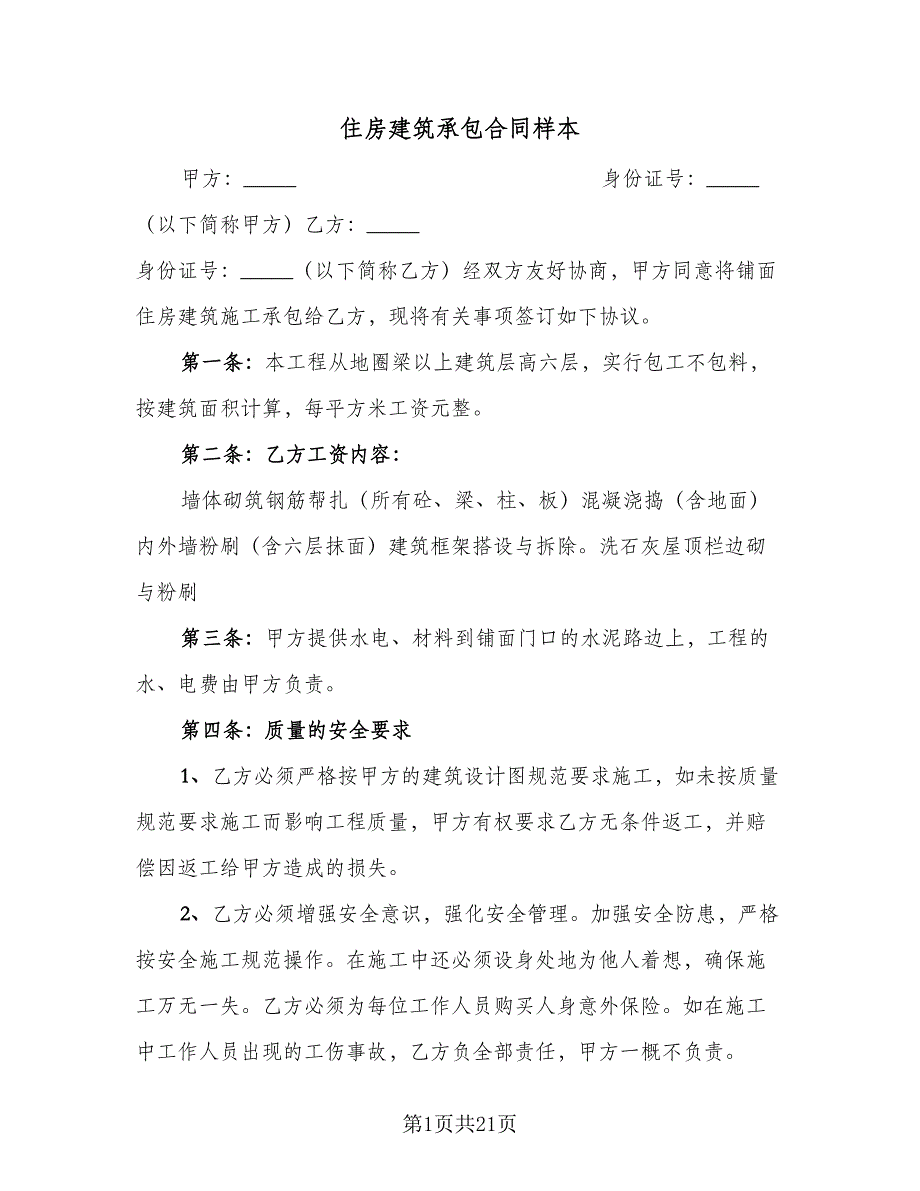 住房建筑承包合同样本
甲方：_____ 身份证号：_____
（以下简称甲方）乙方：_____
身份证号：_____（以下简称乙方）经双方友好协商，甲方同意将铺面
住房建筑施工承包给乙方，现将有关事项签订如下协议。
第一条：本工程从地圈梁以上建筑层高六层，实行包工不包料，
按建筑面积计算，每平方米工资元整。
第二条：乙方工资内容：
墙体砌筑钢筋帮扎（所有砼、梁、柱、板）混凝浇捣（含地面）
内外墙粉刷（含六层抹面）建筑框架搭设与拆除。洗石灰屋顶栏边砌
与粉刷
第三条：甲方提供水电、材料到铺面门口的水泥路边上，工程的
水、电费由甲方负责。
第四条：质量的安全要求
1、乙方必须严格按甲方的建筑设计图规范要求施工，如未按质量
规范要求施工而影响工程质量，甲方有权要求乙方无条件返工，并赔
偿因返工给甲方造成的损失。
2、乙方必须增强安全意识，强化安全管理。加强安全防患，严格
按安全施工规范操作。在施工中还必须设身处地为他人着想，确保施
工万无一失。乙方必须为每位工作人员购买人身意外保险。如在施工
中工作人员出现的工伤事故，乙方负全部责任，甲方一概不负责。
第1页共21页